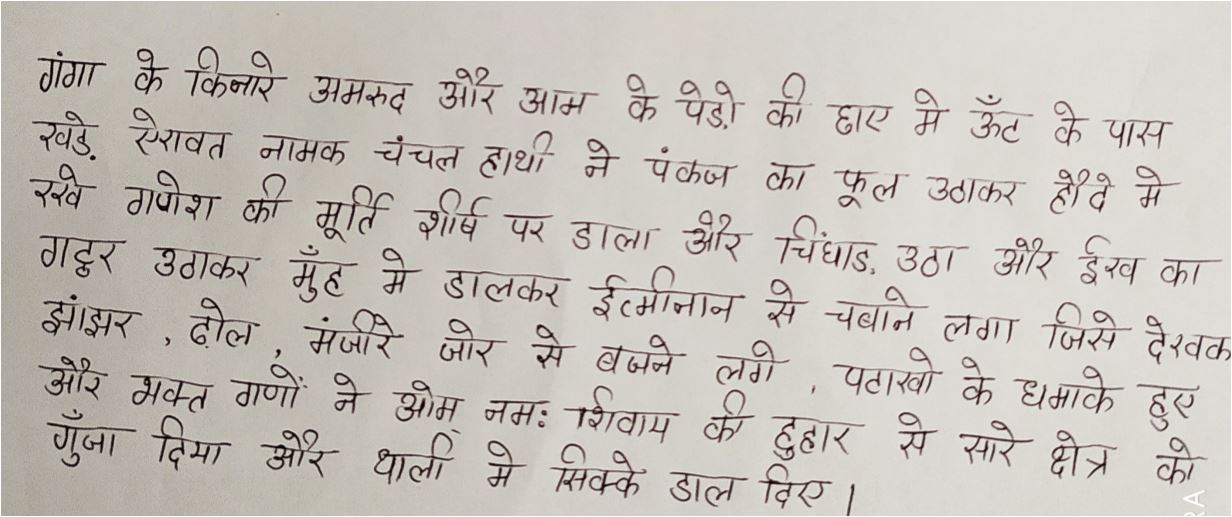 गंगा के किनारे अमरूद और आम के पेड़ो की छाए मे ऊँट के पास
खड़े ऐरावत नामक चंचल हाथी ने पंकज का फूल उठाकर हौदे मे
रखे गणेश की मूर्ति शीर्ष पर डाला और चिंघाड़ उठा और ईख का
गट्ठर उठाकर मुँह मे डालकर ईत्मीनान से चबाने लगा जिसे देखक
झांझर , ढ़ोल , मंजीरे जोर से बजने लगे , पटाखो के धमाके हुए
और भक्त गणों ने ओम् नमः शिवाय की हुहार से सारे क्षेत्र को
गुँजा दिया और थाली मे सिक्के डाल दिए।
RA